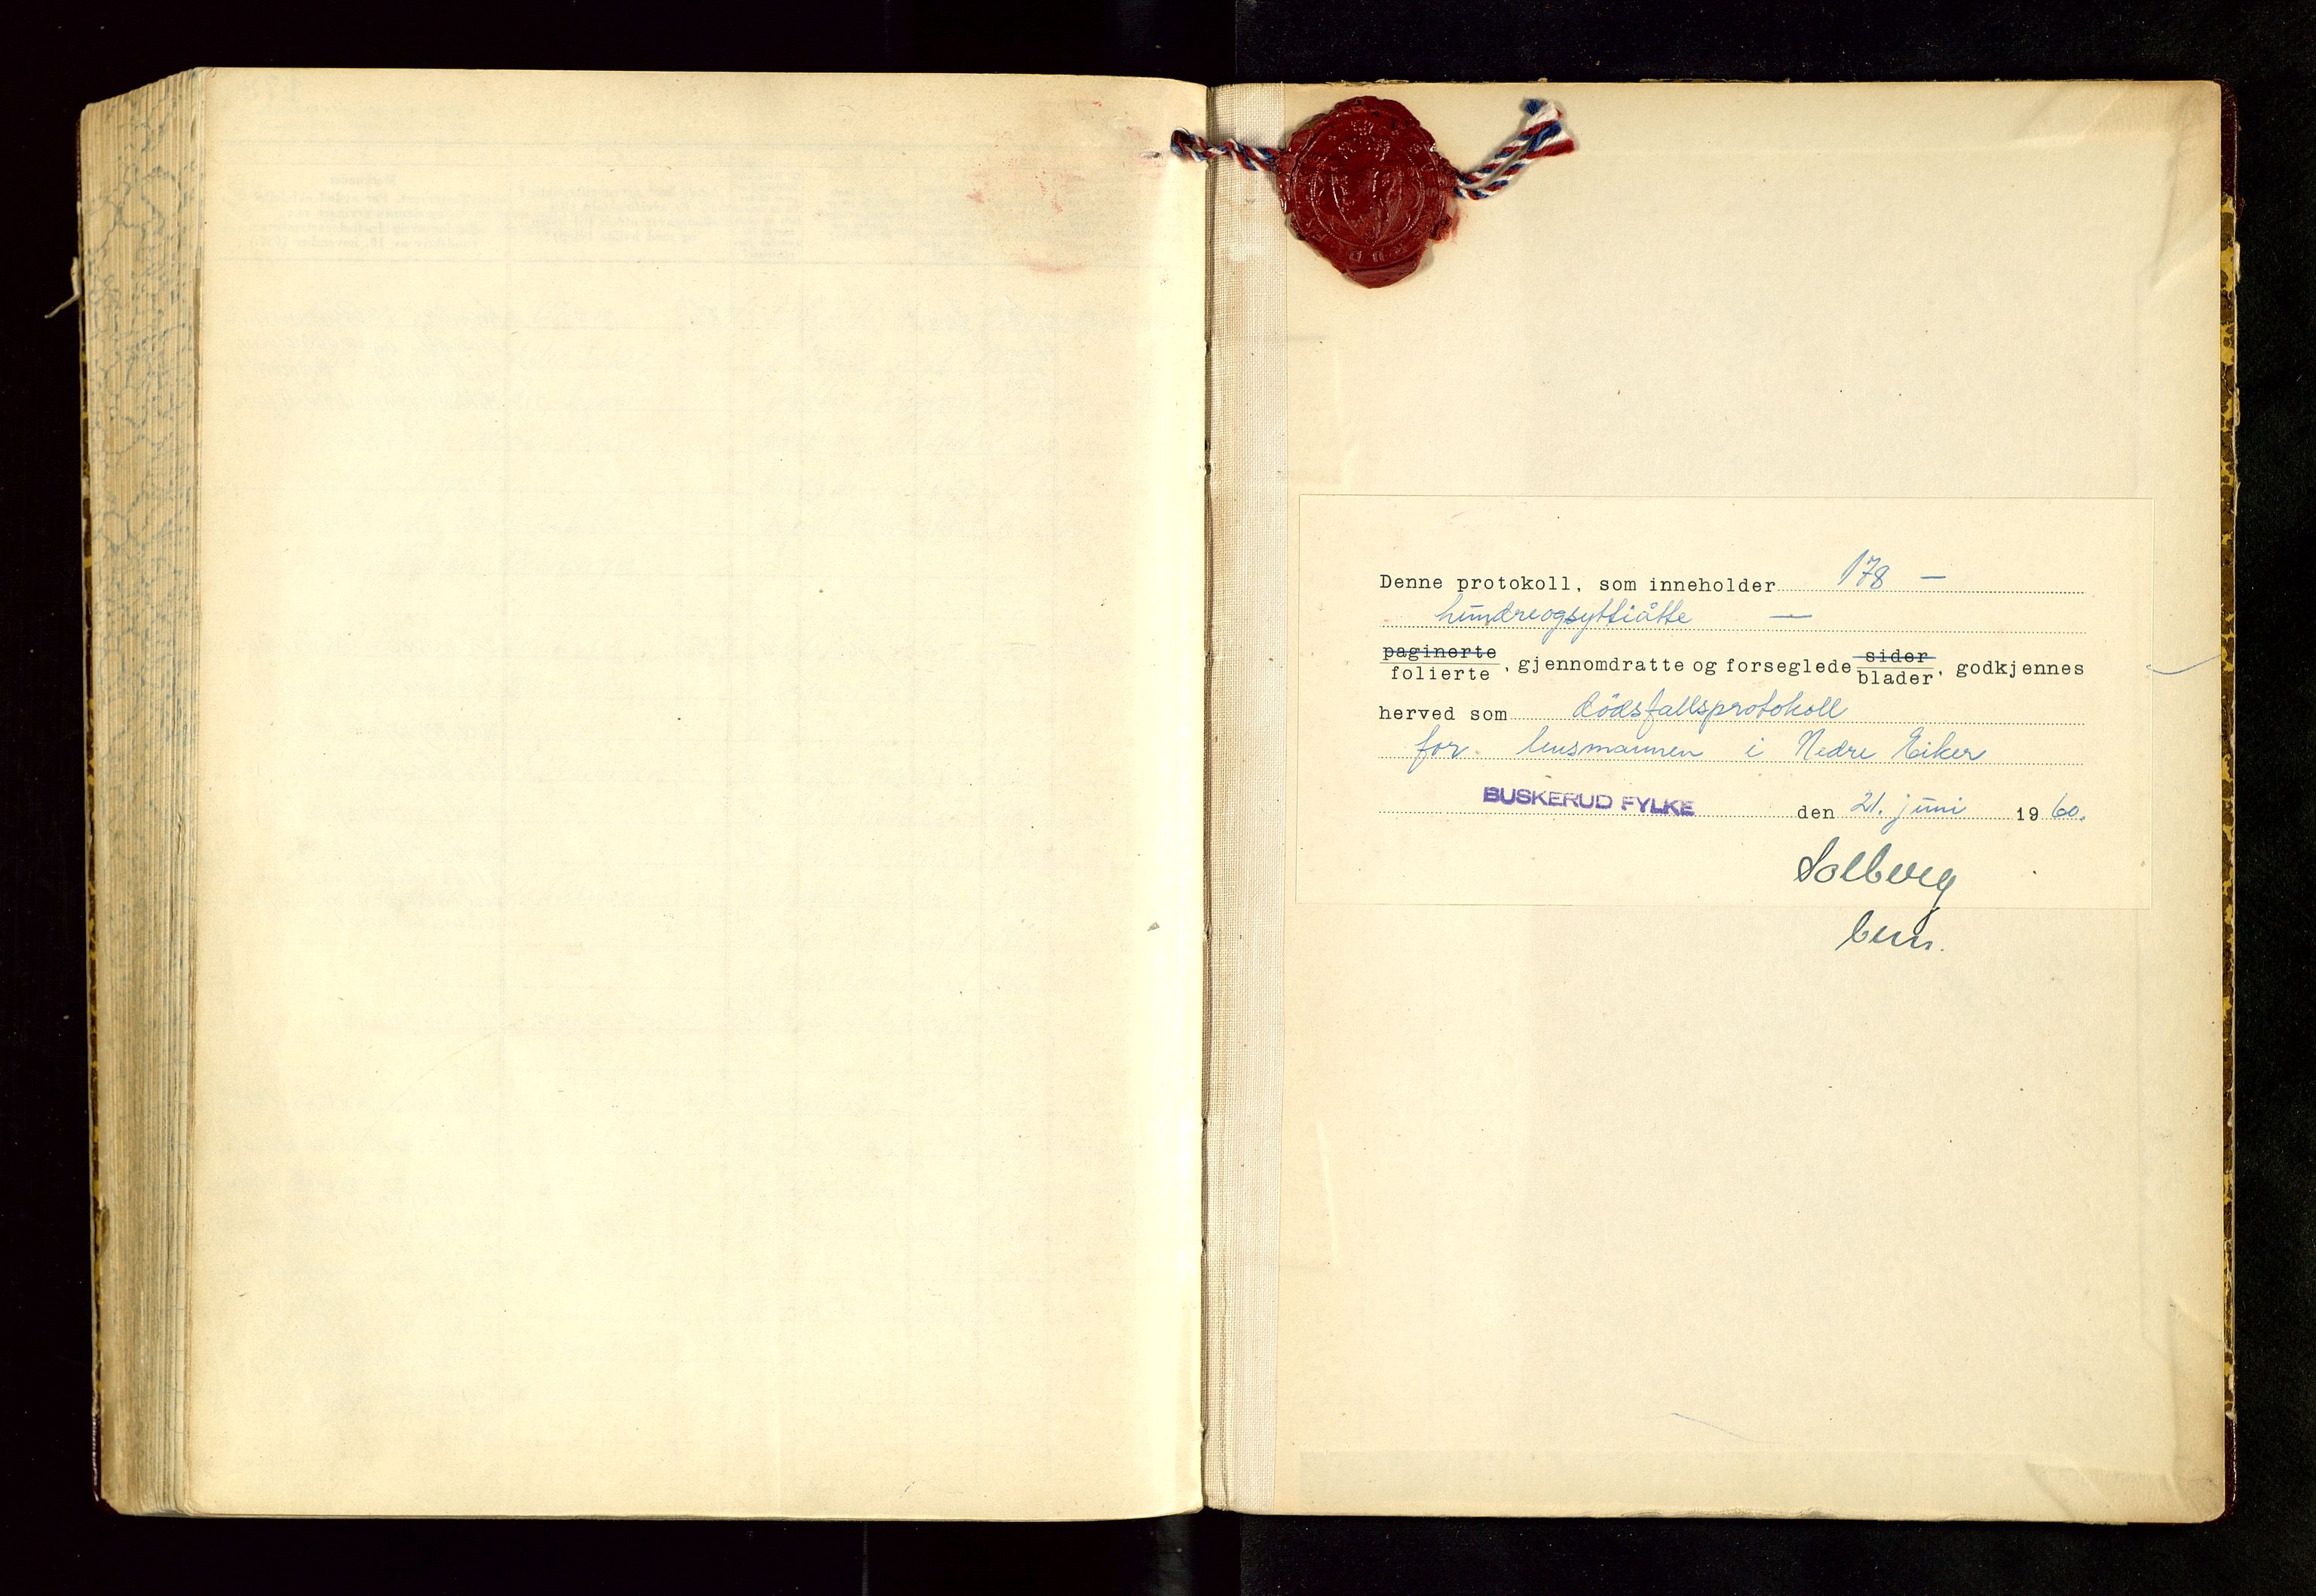 Denne protokoll, som inneholder 178 —
hundreogsyttiåtte —
paginerte sider
folierte, gjennomdratte og forseglede blader, godkjennes
herved som dödsfallsprotokoll
for lensmannen i Nedre Eiker
BUSKERUD FYLKE den 21. juni 1960.
Solberg